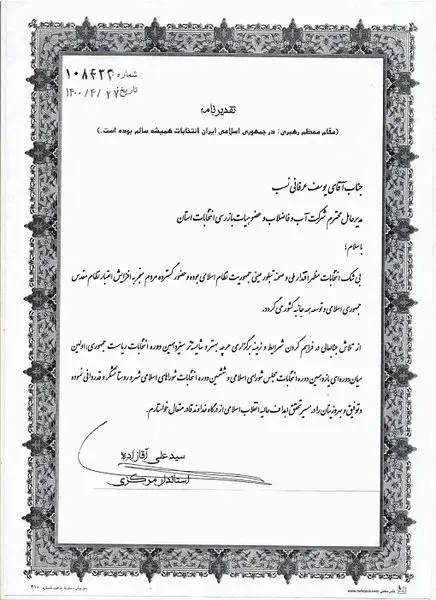 شماره: ۱۰۸۴۲۴
تاریخ ۱۴۰۰/۴/۲۷
تقدیرنامه
(مقام معظم رهبری: در جمهوری اسلامی ایران انتخابات همیشه سالم بوده است.)
جناب آقای یوسف عرفانی نسب
مدیرعامل محترم شرکت آب و فاضلاب و عضو هیات بازرسی انتخابات استان
با سلام؛
بی شک انتخابات مظهر اقتدار ملی و صحنه تبلور عینی جمهوریت نظام اسلامی بوده و حضور گسترده مردم منجر به افزایش اعتبار نظام مقدس
جمهوری اسلامی و توسعه همه جانبه کشور می گردد.
از تلاش جنابعالی در فراهم کردن شرایط و زمینه برگزاری هرچه بهتر و شایسته تر سیزدهمین دوره انتخابات ریاست جمهوری؛ اولین
میان دوره ای یازدهمین دوره انتخابات مجلس شورای اسلامی و ششمین دوره انتخابات شوراهای اسلامی شهر و روستا تشکر و قدردانی نموده
و توفیق و بهروزیتان را در مسیر تحقق اهداف عالیه انقلاب اسلامی از درگاه خداوند قادر متعال خواستارم.
سید علی آقازاده
استاندار مرکزی